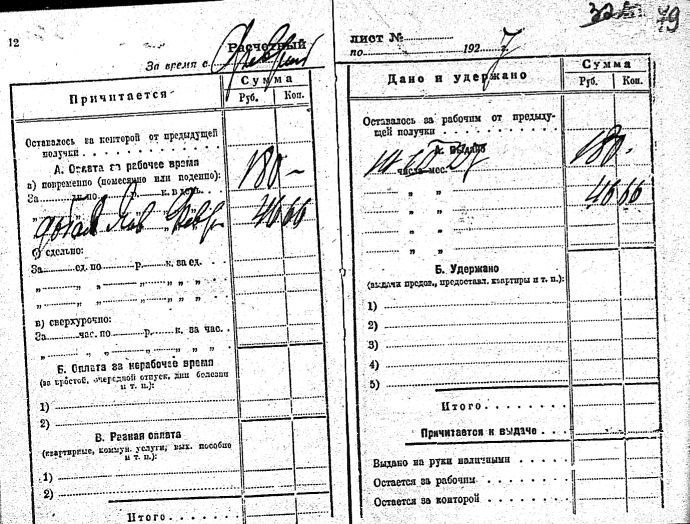 12
Расчетный
За время с
Причитается
Сумма
Руб. Коп.
Оставалось за конторой от предыдущей
получки
А. Оплата за рабочее время
а) повременно (помесячно или поденно):
180 –
За дн. по р. к. в день
46 66
б) сдельно:
За ед. по р. к. за ед.
„ „ „ „ „ „
„ „ „ „ „ „
в) сверхурочно:
За час. по р. к. за час.
„ „ „ „ „ „
Б. Оплата за нерабочее время
(за простой, очередной отпуск, дни болезни
и т. п.):
1)
2)
В. Разная оплата
(квартирные, коммун. услуги, вых. пособие
и т. п.):
1)
2)
Итого
79
лист №
по 192 7
Дано и удержано
Сумма
Руб. Коп.
Оставалось за рабочим от предыду-
щей получки
А. Выдано
числа мес. 180 -
„ „ 46 66
„ „
„ „
„ „
Б. Удержано
(выдачи продов., предоставл. квартиры и т. п.):
1)
2)
3)
4)
5)
Итого
Причитается к выдаче
Выдано на руки наличными
Остается за рабочим
Остается за конторой